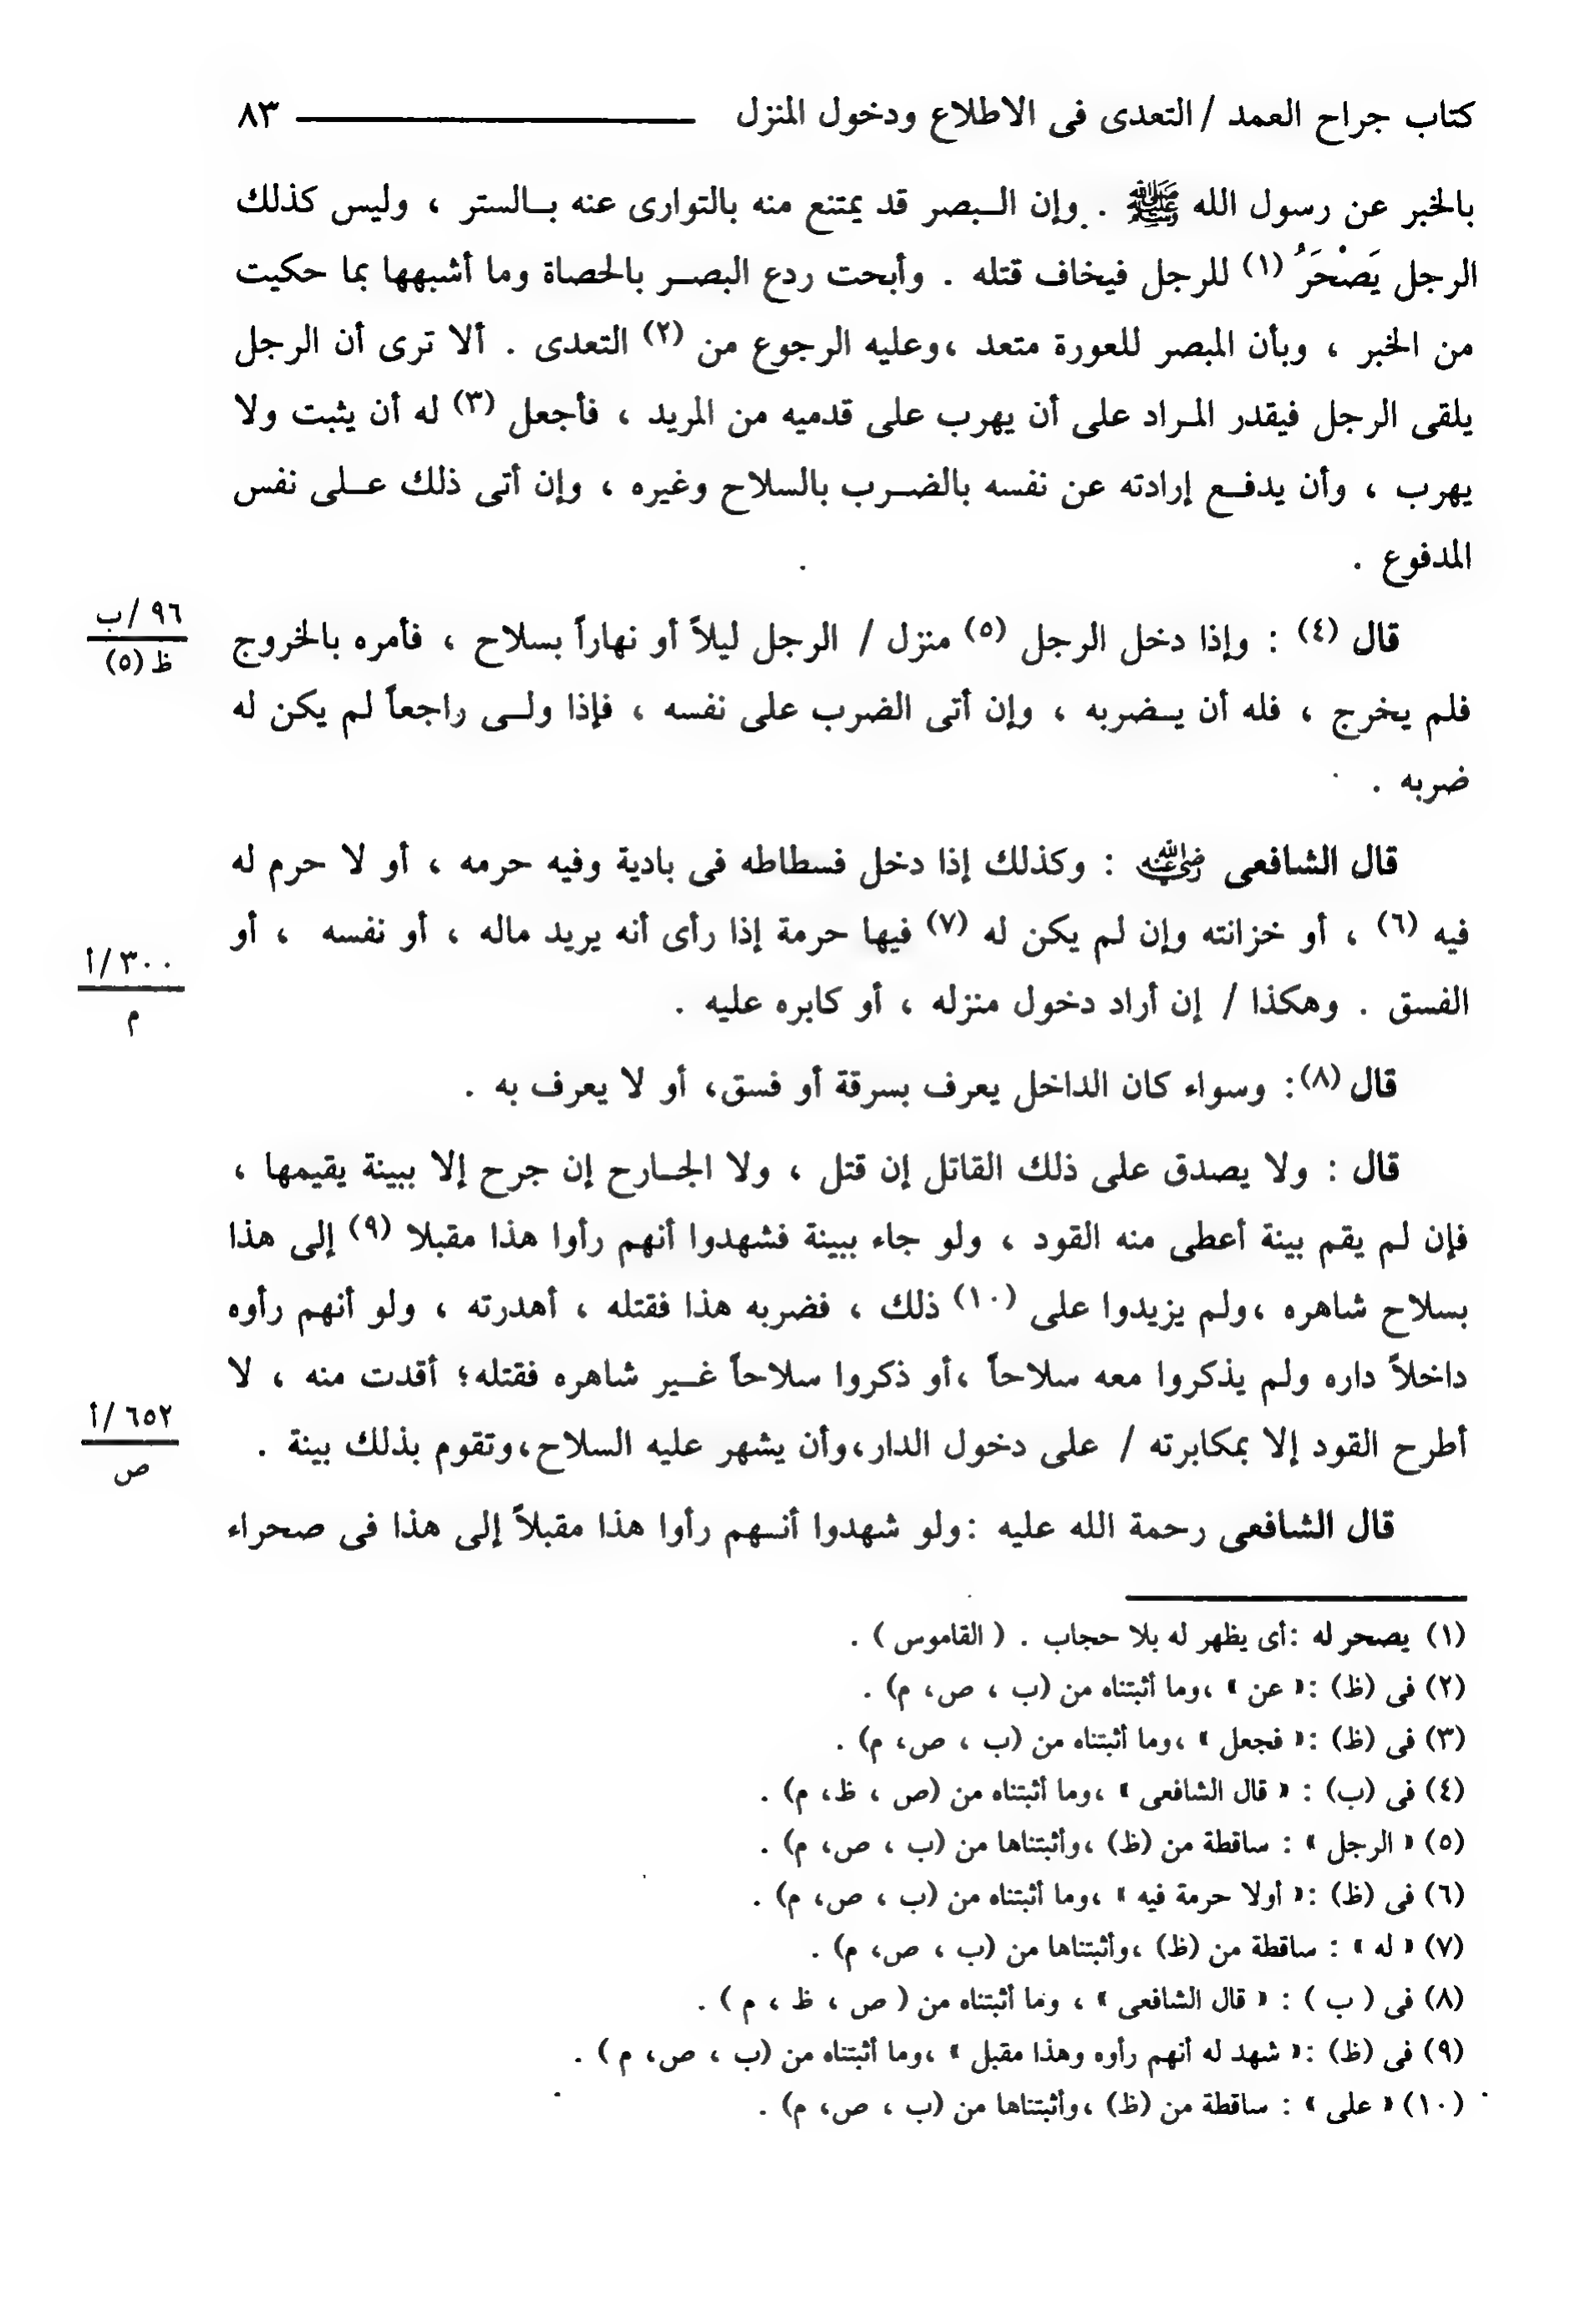 كتاب جراح العمد / التعدى فى الاطلاع ودخول المنزل ٨٣
بالخبر عن رسول الله ﷺ . وإن البصر قد يمتنع منه بالتوارى عنه بالستر ، وليس كذلك
الرجل يَصْحَرُ (١) للرجل فيخاف قتله . وأبحت ردع البصر بالحصاة وما أشبهها بما حكيت
من الخبر ، وبأن المبصر للعورة متعد ، وعليه الرجوع من (٢) التعدى . ألا ترى أن الرجل
يلقى الرجل فيقدر المراد على أن يهرب على قدميه من المريد ، فأجعل (٣) له أن يثبت ولا
يهرب ، وأن يدفع إرادته عن نفسه بالضرب بالسلاح وغيره ، وإن أتى ذلك على نفس
المدفوع .
قال (٤) : وإذا دخل الرجل (٥) منزل / الرجل ليلاً أو نهاراً بسلاح ، فأمره بالخروج
٩٦ /ب
ظ (٥)
فلم يخرج ، فله أن يضربه ، وإن أتى الضرب على نفسه ، فإذا ولى راجعاً لم يكن له
ضربه .
قال الشافعى رضي الله عنه : وكذلك إذا دخل فسطاطه فى بادية وفيه حرمه ، أو لا حرم له
فيه (٦) ، أو خزانته وإن لم يكن له (٧) فيها حرمة إذا رأى أنه يريد ماله ، أو نفسه ، أو
٣٠٠ /أ
م
الفسق . وهكذا / إن أراد دخول منزله ، أو كابره عليه .
قال (٨): وسواء كان الداخل يعرف بسرقة أو فسق، أو لا يعرف به .
قال : ولا يصدق على ذلك القاتل إن قتل ، ولا الجارح إن جرح إلا ببينة يقيمها ،
فإن لم يقم بينة أعطى منه القود ، ولو جاء ببينة فشهدوا أنهم رأوا هذا مقبلا (٩) إلى هذا
بسلاح شاهره ، ولم يزيدوا على (١٠) ذلك ، فضربه هذا فقتله ، أهدرته ، ولو أنهم رأوه
داخلاً داره ولم يذكروا معه سلاحاً ، أو ذكروا سلاحاً غير شاهره فقتله؛ أقدت منه ، لا
٦٥٢ /أ
ص
أطرح القود إلا بمكابرته / على دخول الدار، وأن يشهر عليه السلاح، وتقوم بذلك بينة .
قال الشافعى رحمة الله عليه : ولو شهدوا أنهم رأوا هذا مقبلاً إلى هذا فى صحراء
(١) يصحر له : أى يظهر له بلا حجاب . ( القاموس ) .
(٢) فى (ظ) : « عن » ، وما أثبتناه من (ب ، ص، م) .
(٣) فى (ظ) : « فجعل » ، وما أثبتناه من (ب ، ص، م) .
(٤) فى (ب) : « قال الشافعى » ، وما أثبتناه من (ص ، ظ، م) .
(٥) « الرجل » : ساقطة من (ظ) ، وأثبتناها من (ب ، ص، م) .
(٦) فى (ظ) : « أولا حرمة فيه » ، وما أثبتناه من (ب ، ص، م) .
(٧) « له » : ساقطة من (ظ) ، وأثبتناها من (ب ، ص، م) .
(٨) فى ( ب ) : « قال الشافعى » ، وما أثبتناه من ( ص ، ظ ، م ) .
(٩) فى (ظ) : « شهد له أنهم رأوه وهذا مقبل » ، وما أثبتناه من (ب ، ص، م ) .
(١٠) « على » : ساقطة من (ظ) ، وأثبتناها من (ب ، ص، م) .